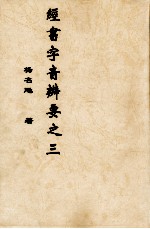 經書字音辨要之三
楊名颺 著